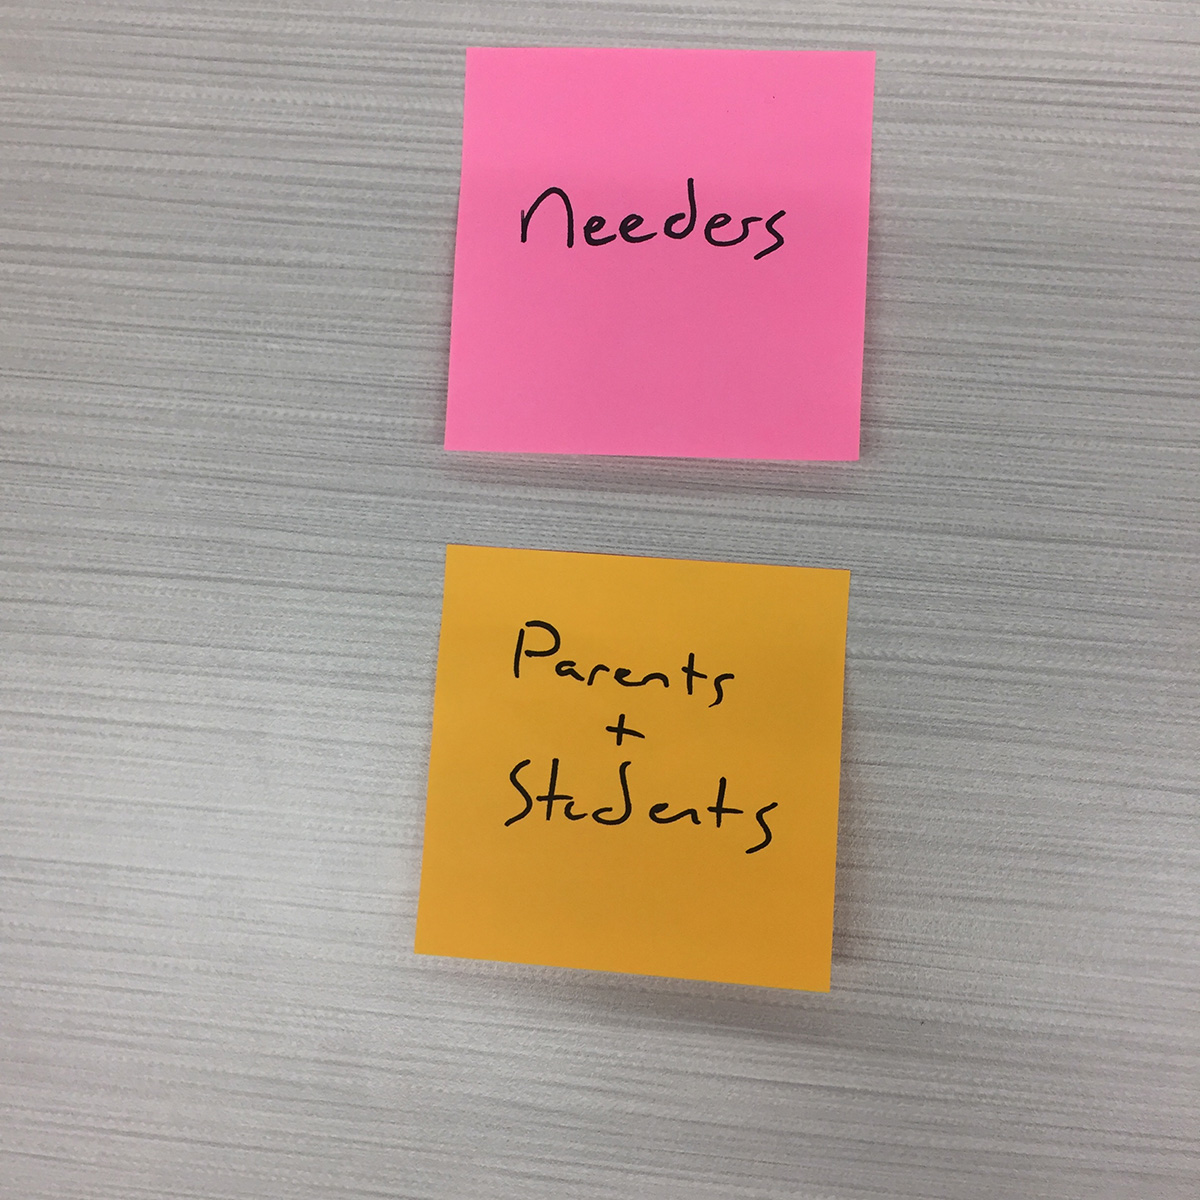 Needers
Parents
+
Students